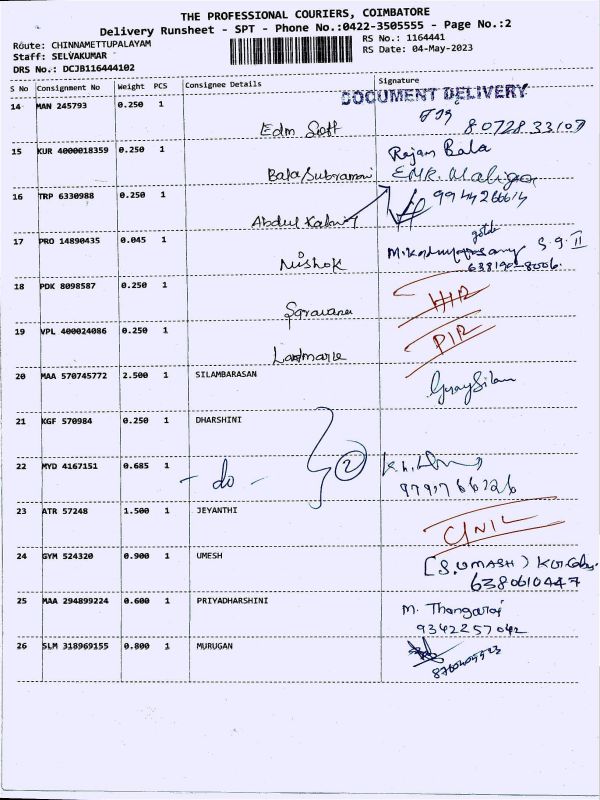 THE PROFESSIONAL COURIERS, COIMBATORE
Delivery Runsheet - SPT - Phone No.:0422-3505555 - Page No.:2
Route: CHINNAMETTUPALAYAM
Staff: SELVAKUMAR
DRS No.: DCJB116444102
RS No.: 1164441
RS Date: 04-May-2023
S No Consignment No Weight PCS Consignee Details Signature
DOCUMENT DELIVERY
14 MAN 245793 0.250 1
15 KUR 4000018359 0.250 1 Rajan Bala
Bala Subramani EMR.
16 TRP 6330988 0.250 1 9944266614
Abdul
17 PRO 14890435 0.045 1 S.G. II
Nishok
18 PDK 8098587 0.250 1
19 VPL 400024086 0.250 1
Landmark
20 MAA 570745772 2.500 1 SILAMBARASAN
21 KGF 570984 0.250 1 DHARSHINI
22 MYD 4167151 0.685 1 - do - 2
23 ATR 57248 1.500 1 JEYANTHI
24 GYM 524320 0.900 1 UMESH (S.UMASH)
6380610447
25 MAA 294899224 0.600 1 PRIYADHARSHINI M. Thangaraj
9342257042
26 SLM 318969155 0.800 1 MURUGAN